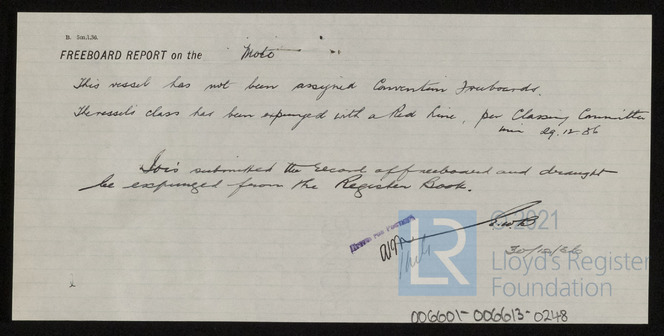 B. 5m,1,36.
FREEBOARD REPORT on the Moto
This vessel has not been assigned Convention Freeboards.
The vessel's class has been expunged with a Red Line, per Classing Committee
min 29.12.36
It is submitted the record of freeboard and draught
be expunged from the Register Book.
© 2021
30/12/36
LR
Lloyd's Register
Foundation
006601-006613-0248